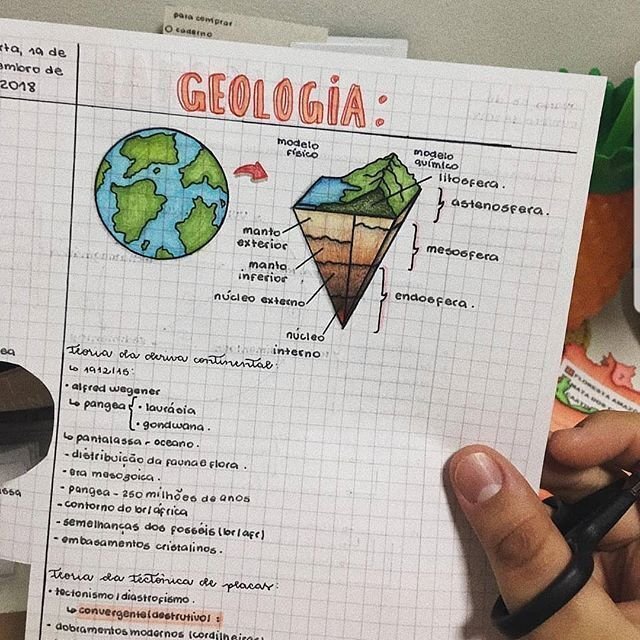 para comprar
caderno
rta, 19 de
embro de
2018
GEOLOGIA:
modelo
físico
modelo
químico
litosfera.
astenosfera.
manto
exterior
mesosfera
manto
inferior
núcleo externo
endosfera.
núcleo
interno
Teoria da deriva continental:
↳ 1912/15:
• alfred wegener
↳ pangea { • laurásia
• gondwana.
↳ pantalassa - oceano.
- distribuição da fauna e flora.
- era mesozoica.
- pangea - 250 milhões de anos
- contorno do br/africa
- semelhanças dos fosséis (br/afr)
- embasamentos cristalinos.
Teoria da tectônica de placas:
• tectonismo/diastrofismo.
↳ convergente (destrutivo):
- dobramentos modernos (cordilheiras
FLORESTA AMA
MATA DOS